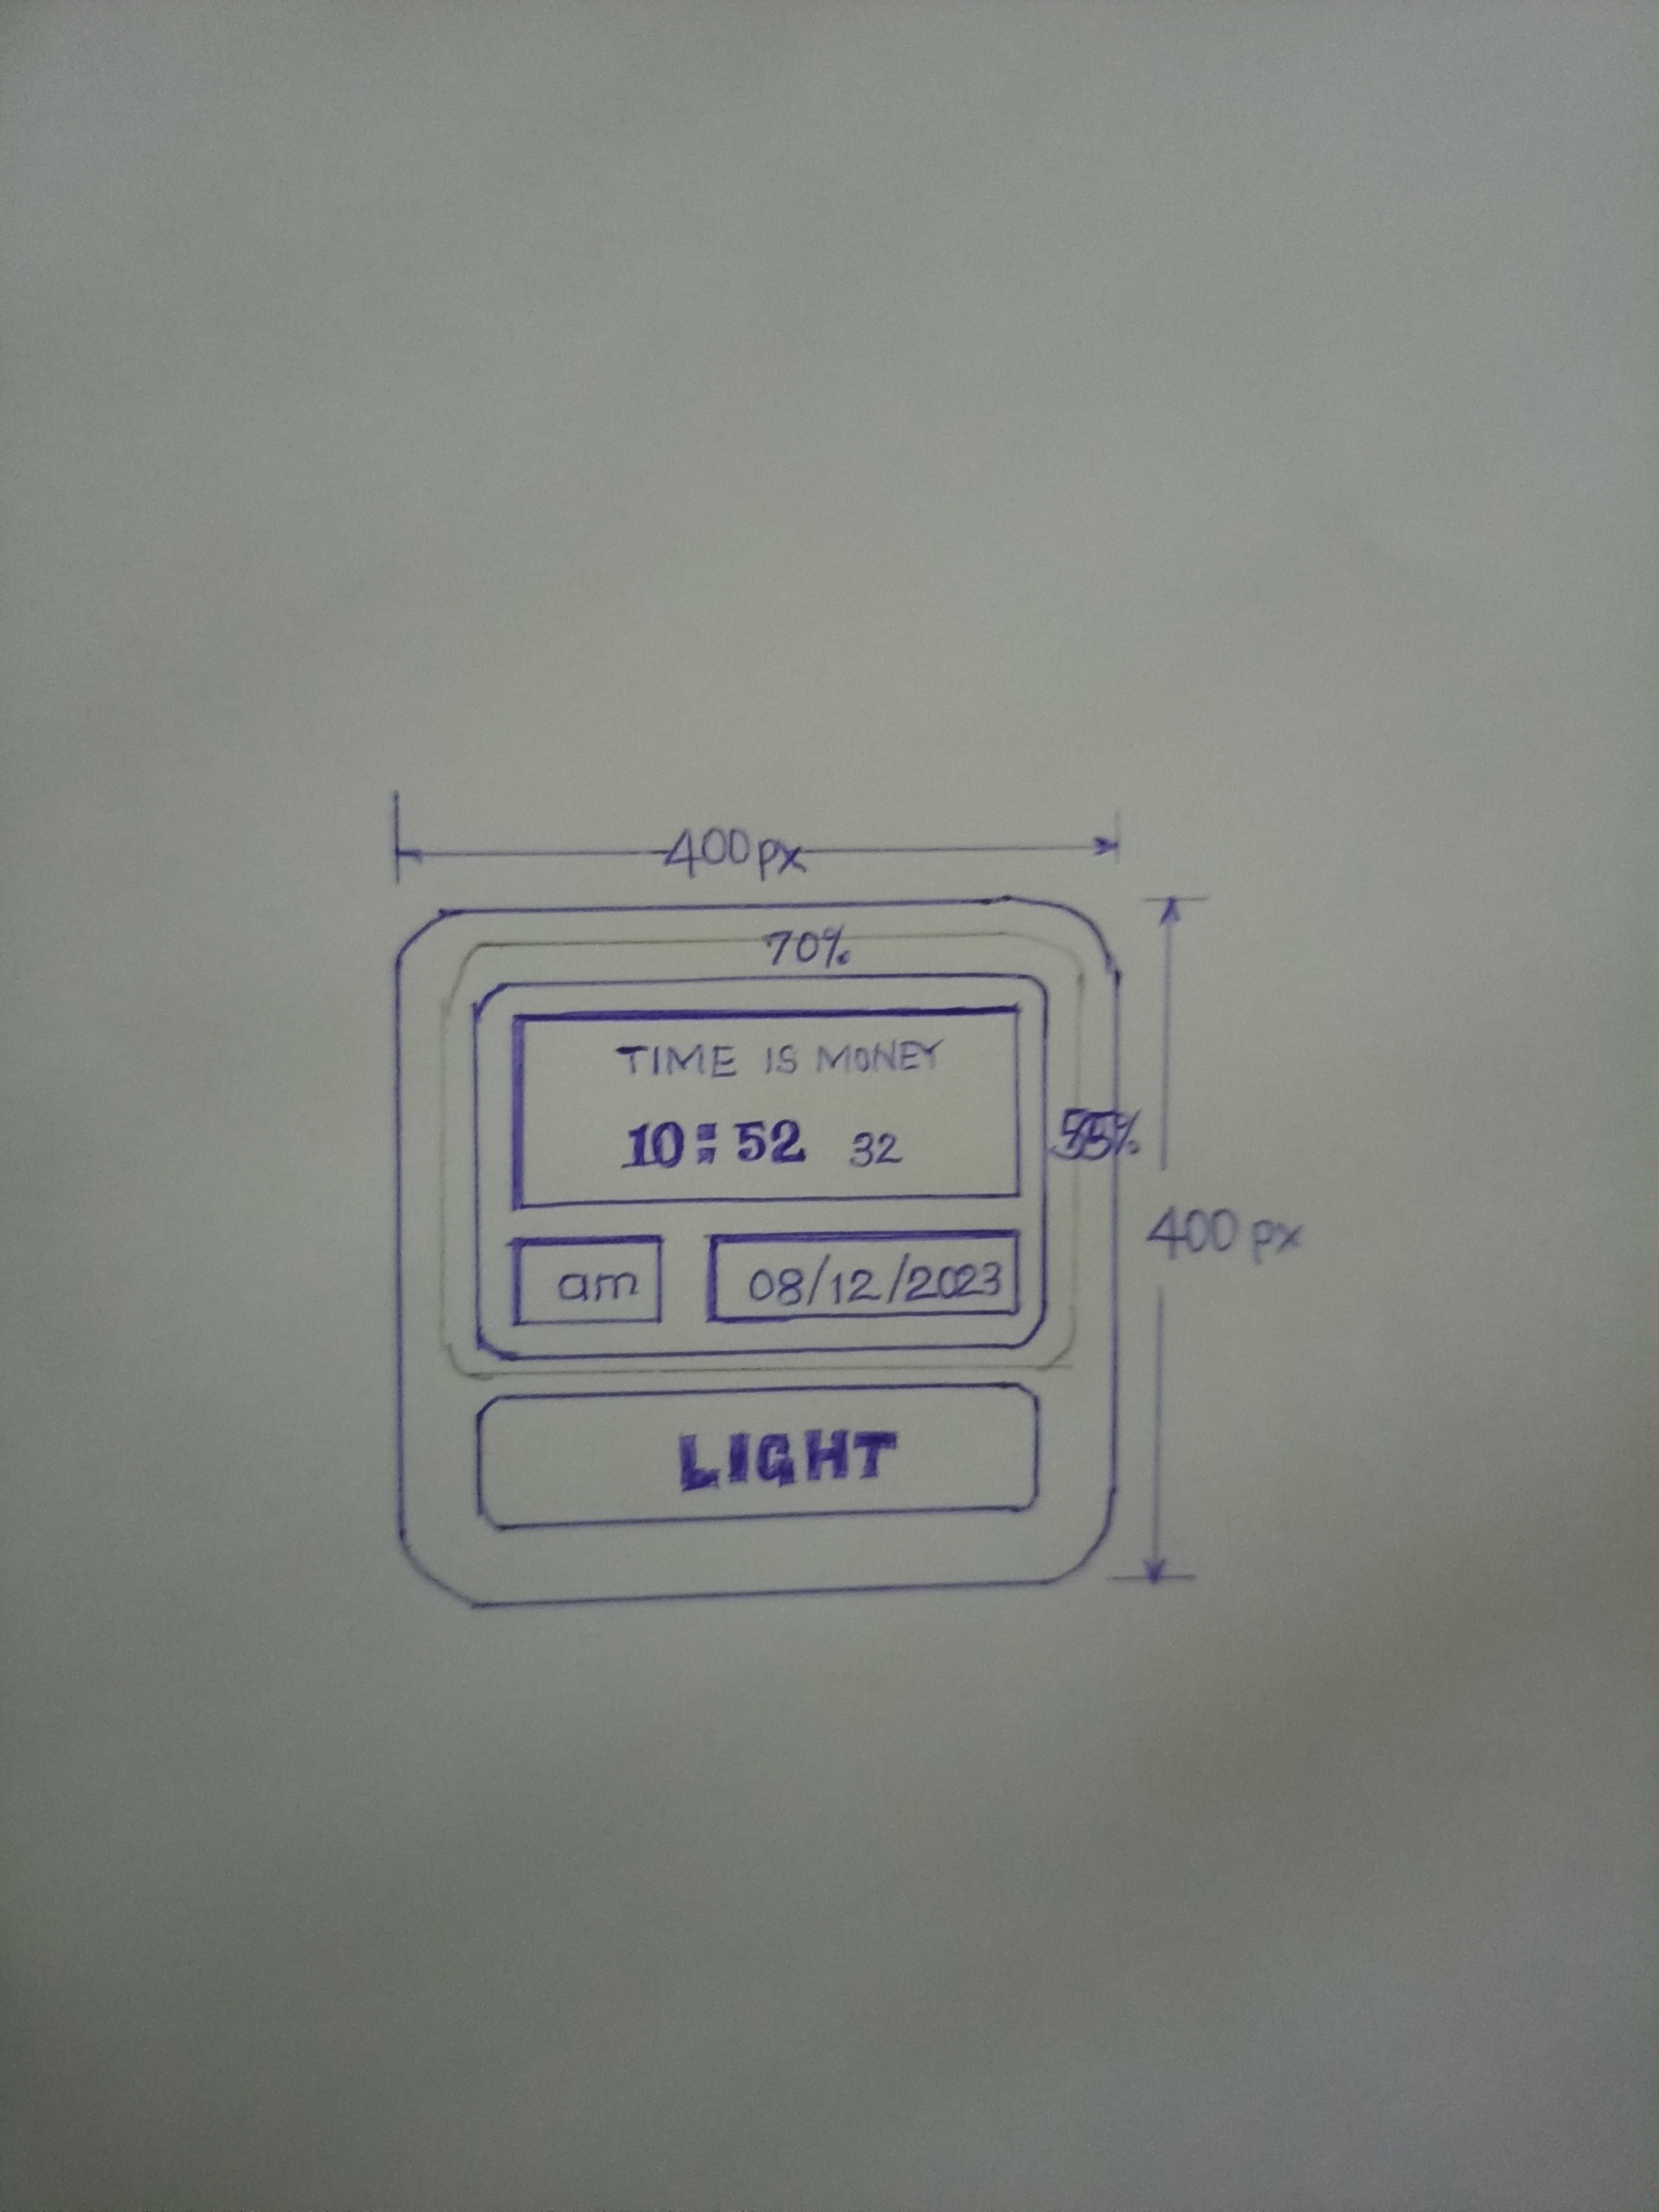 400px
70%
TIME IS MONEY
10:52 32
55%
400 px
am
08/12/2023
LIGHT